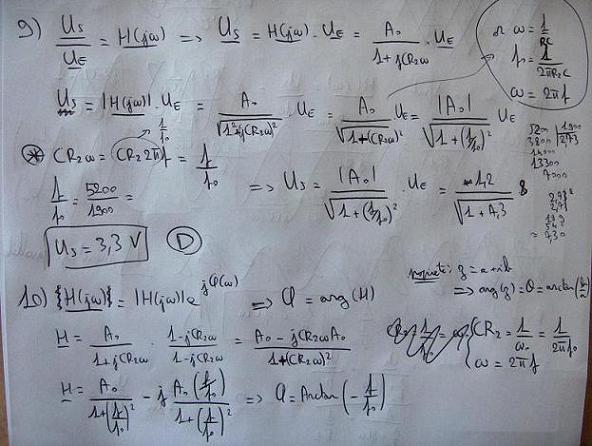 9) U_S / U_E = H(jω) => U_S = H(jω) . U_E = A₀ / (1 + jCR₂ω) . U_E
or ω = 1 / RC
f₀ = 1 / (2πR₂C)
ω = 2πf
U_S = |H(jω)| . U_E = A₀ / √(1² + (CR₂ω)²) . U_E = A₀ / √(1 + (CR₂ω)²) U_E = |A₀| / √(1 + (f/f₀)²) U_E
⊛ CR₂ω = CR₂2πf = f / f₀
1/f₀
f / f₀ = 5200 / 1900 =
=> U_S = |A₀| / √(1 + (f/f₀)²) . U_E = 1,2 / √(1 + 7,3) 8
5200 | 1900
3800 | 2,73
14000
13300
7000
U_S = 3,3 V (D)
10) H(jω) = |H(jω)| e^(jφ(ω)) => φ = arg(H)
z = a + ib
=> arg(z) = θ = arctan(b/a)
H = A₀ / (1 + jCR₂ω) . (1 - jCR₂ω) / (1 - jCR₂ω) = (A₀ - jCR₂ωA₀) / (1 + (CR₂ω)²)
CR₂ = 1 / ω₀ = 1 / (2πf₀)
ω = 2πf
H = A₀ / (1 + (f/f₀)²) - j A₀(f/f₀) / (1 + (f/f₀)²) => φ = Arctan(-f/f₀)